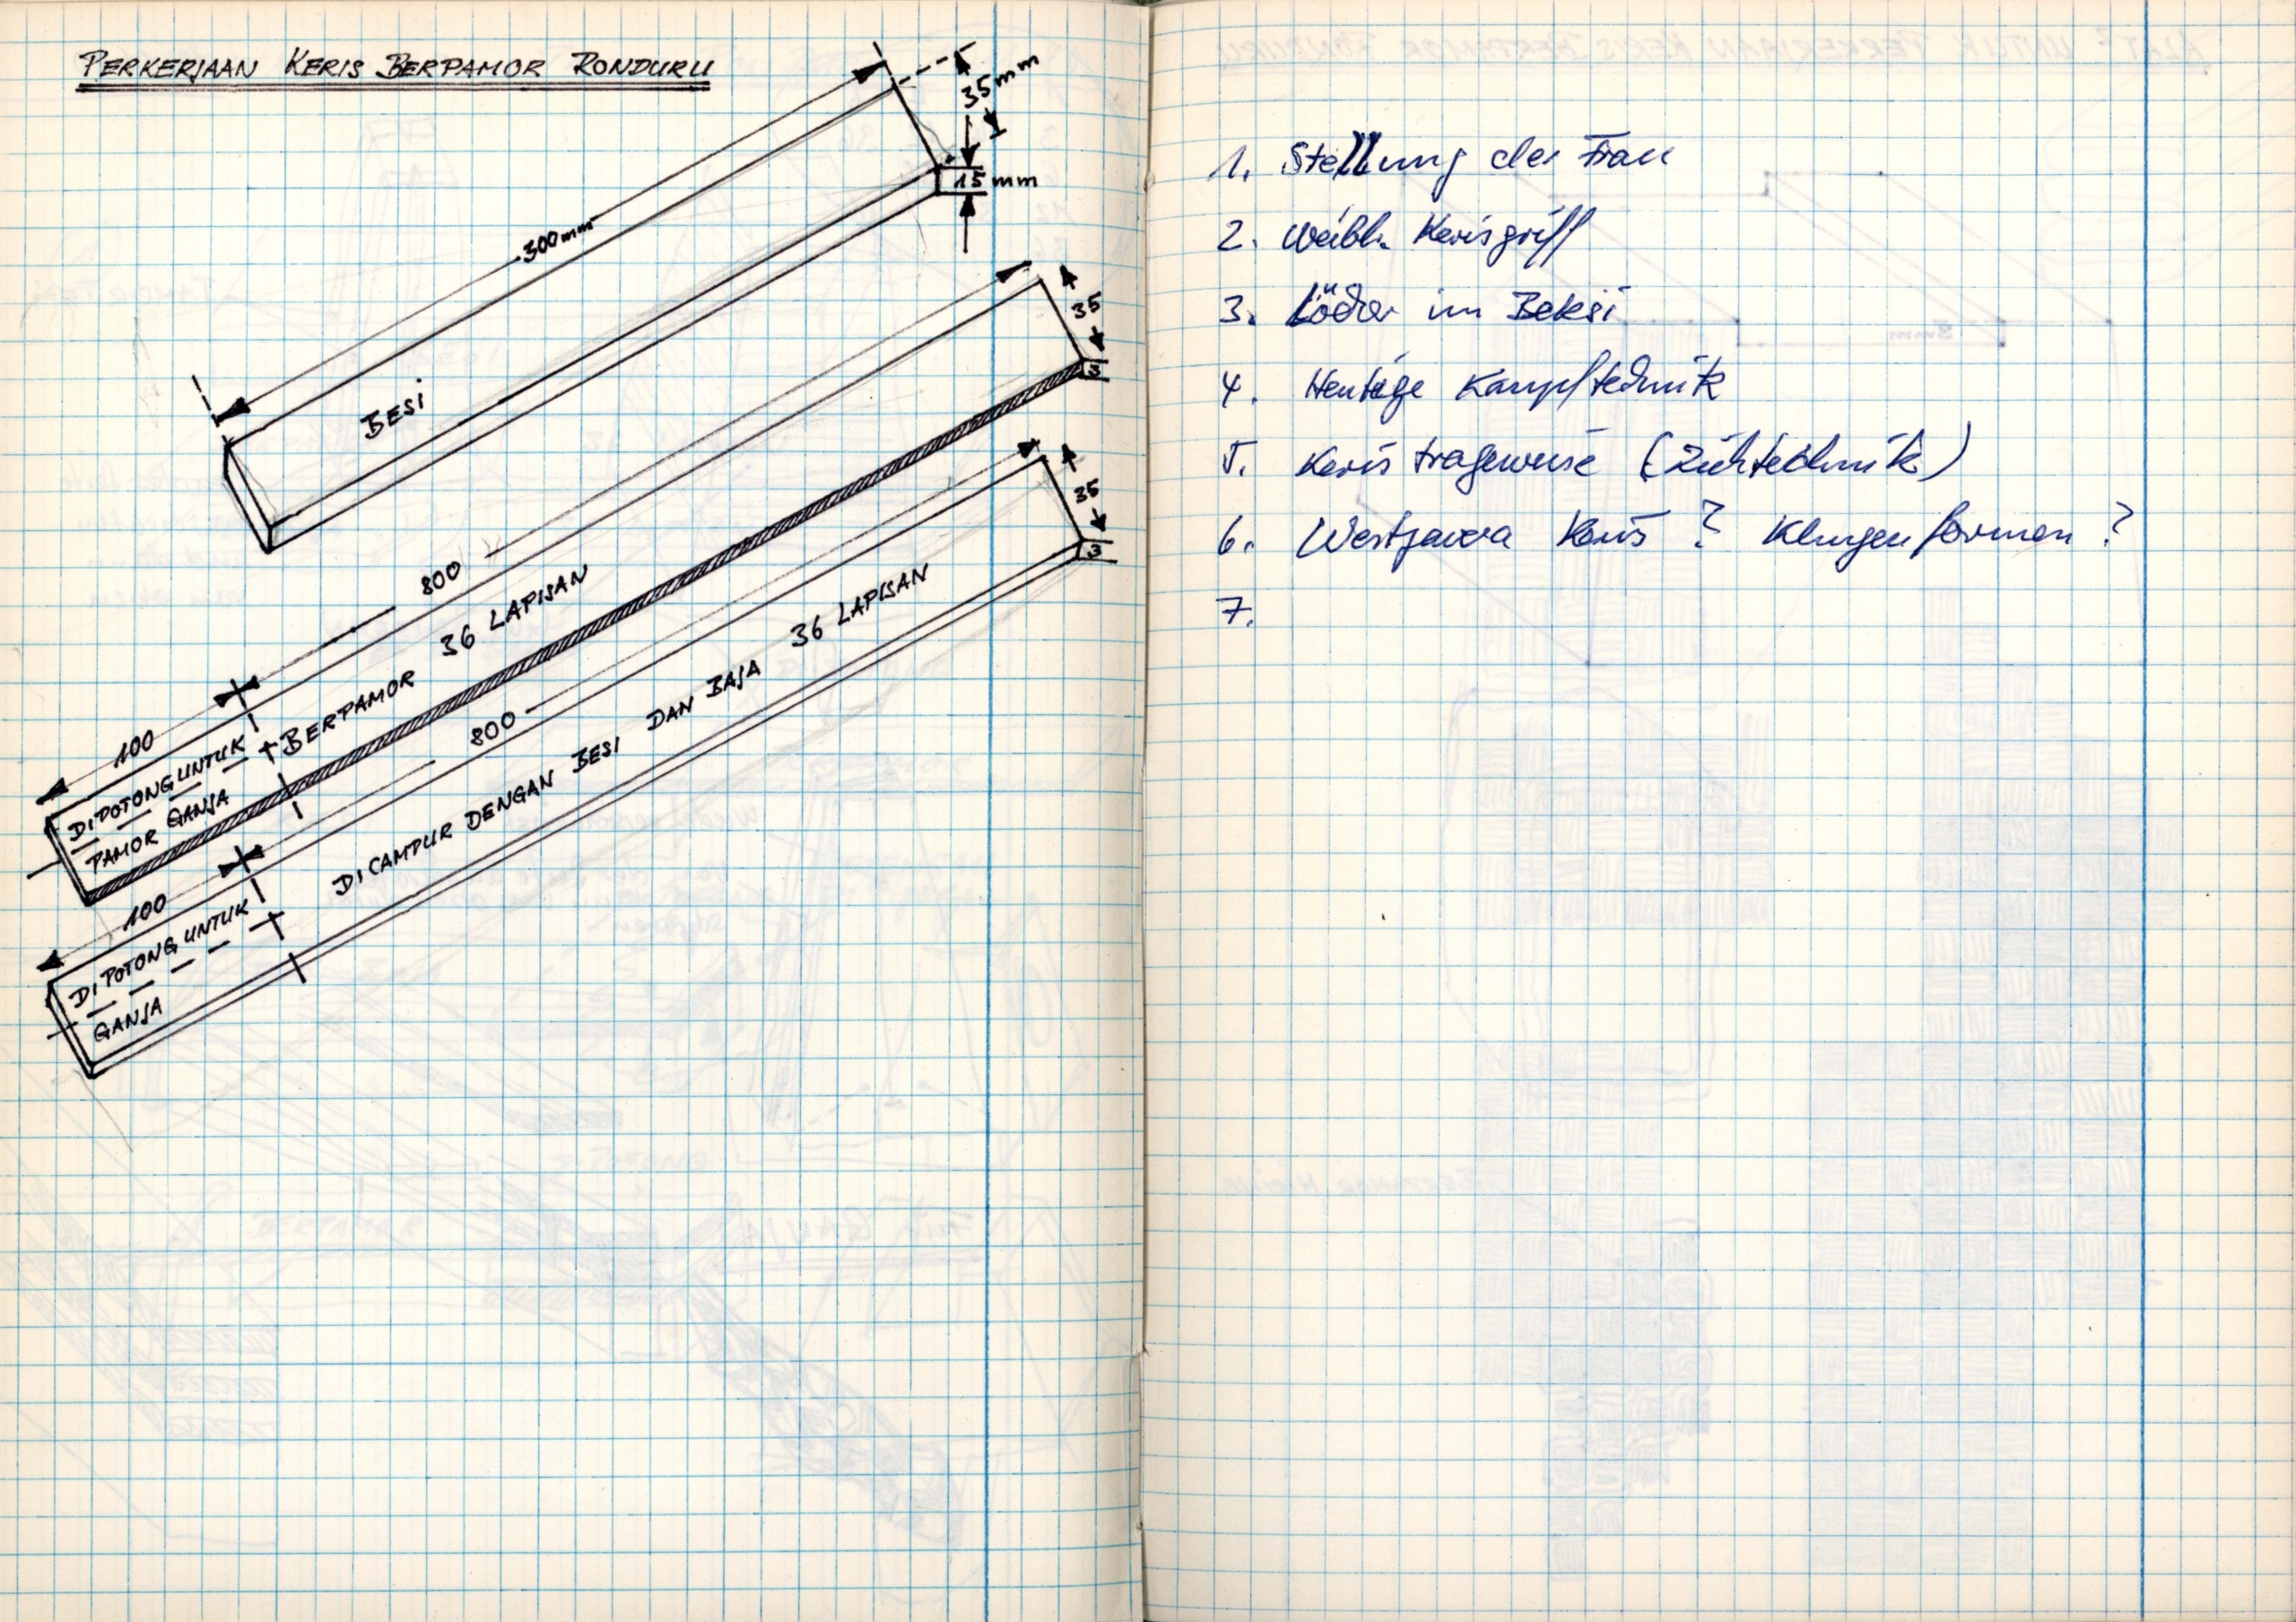 PERKERJAAN KERIS BERPAMOR RONDURU
35mm
15mm
300mm
BESI
35
3
800
36 LAPISAN
BERPAMOR
100
DIPOTONG UNTUK
PAMOR GANJA
35
3
800
DICAMPUR DENGAN BESI DAN BAJA 36 LAPISAN
100
DIPOTONG UNTUK
GANJA
1. Stellung der Frau
2. Weibl. Kerisgriff
3. Löcher im Beksi
4. Heutige Kampftechnik
5. Keris trageweise (Ziehtechnik)
6. Westjava Keris ? Klingenformen ?
7.